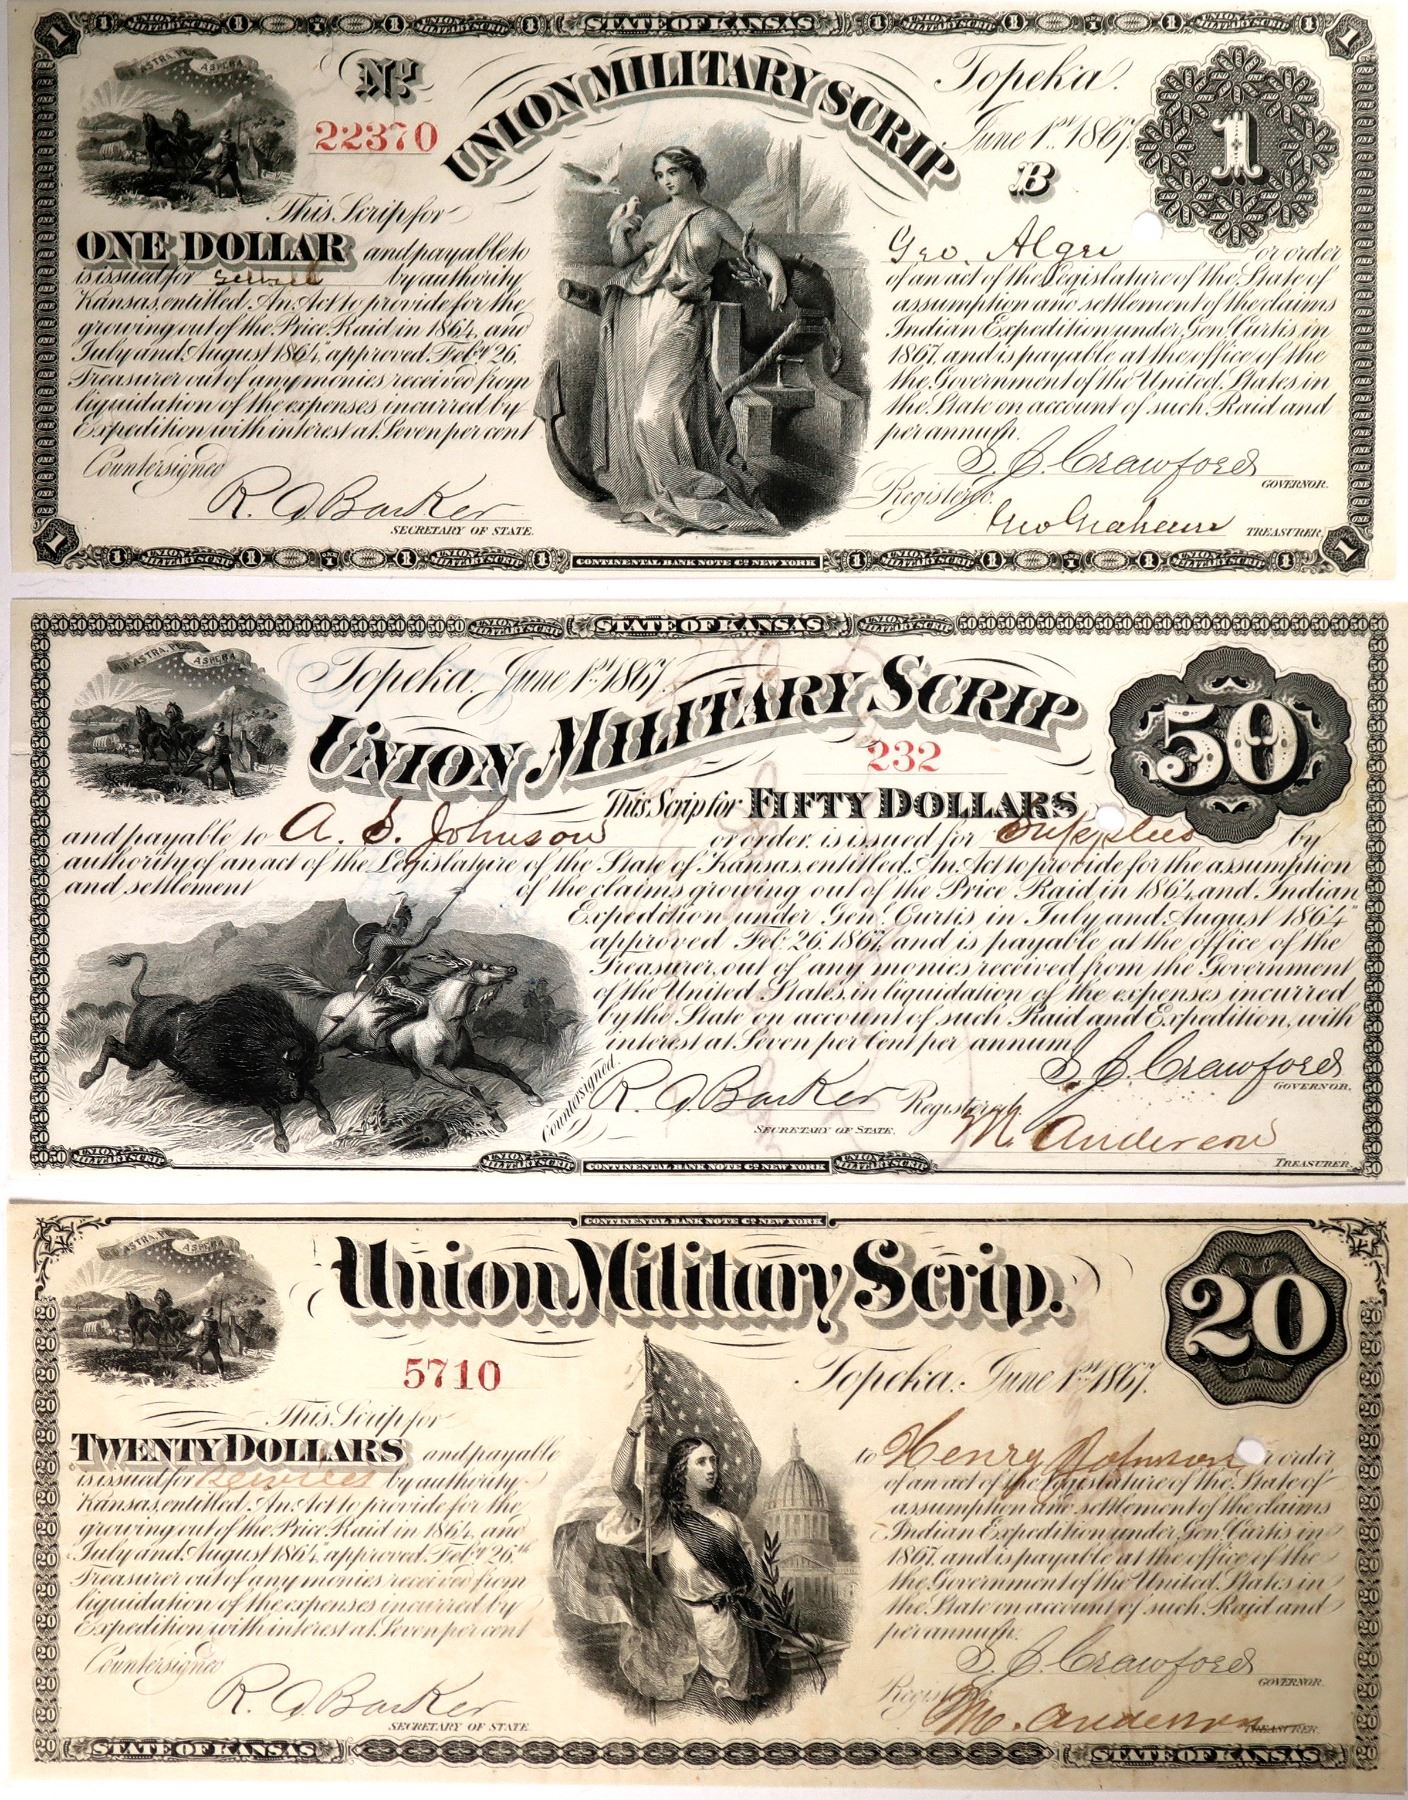 STATE OF KANSAS
AD ASTRA PER ASPERA
No.
22370
UNION MILITARY SCRIP
Topeka.
June 1st. 1867.
B
1
This Scrip for
ONE DOLLAR and payable to Geo. Alger or order
is issued for by authority of an act of the Legislature of the State of
Kansas, entitled. An Act to provide for the assumption and settlement of the claims
growing out of the Price Raid in 1864, and Indian Expedition under Genl. Curtis in
July and August 1864, approved Feby. 26, 1867, and is payable at the office of the
Treasurer out of any monies received from the Government of the United States in
liquidation of the expenses incurred by the State on account of such Raid and
Expedition with interest at Seven per cent per annum.
Countersigned
R. A. Barker
SECRETARY OF STATE.
S. J. Crawford
GOVERNOR.
Registered.
Geo Graham
TREASURER.
CONTINENTAL BANK NOTE Co. NEW YORK
STATE OF KANSAS
AD ASTRA PER ASPERA
Topeka, June 1st. 1867.
UNION MILITARY SCRIP
232
50
This Scrip for FIFTY DOLLARS
and payable to A. S. Johnson or order, is issued for Supplies by
authority of an act of the Legislature of the State of Kansas, entitled. An Act to provide for the assumption
and settlement of the claims growing out of the Price Raid in 1864, and Indian
Expedition under Genl. Curtis in July and August 1864"
approved Feb. 26, 1867, and is payable at the office of the
Treasurer, out of any monies received from the Government
of the United States, in liquidation of the expenses incurred
by the State on account of such Raid and Expedition, with
interest at Seven per Cent per annum.
Countersigned.
R. A. Barker
SECRETARY OF STATE.
S. J. Crawford
GOVERNOR.
Registered.
M. Anderson
TREASURER.
CONTINENTAL BANK NOTE Co. NEW YORK
CONTINENTAL BANK NOTE Co. NEW YORK
AD ASTRA PER ASPERA
Union Military Scrip.
5710
20
Topeka. June 1st. 1867.
This Scrip for
TWENTY DOLLARS and payable to Henry Johnson or order
is issued for Services by authority of an act of the Legislature of the State of
Kansas, entitled. An Act to provide for the assumption and settlement of the claims
growing out of the Price Raid in 1864, and Indian Expedition under Genl. Curtis in
July and August 1864, approved Feby. 26th 1867, and is payable at the office of the
Treasurer out of any monies received from the Government of the United States in
liquidation of the expenses incurred by the State on account of such Raid and
Expedition with interest at Seven per cent per annum.
Countersigned
R. A. Barker
SECRETARY OF STATE
S. J. Crawford
GOVERNOR.
Registered
M. Anderson
TREASURER.
STATE OF KANSAS
STATE OF KANSAS